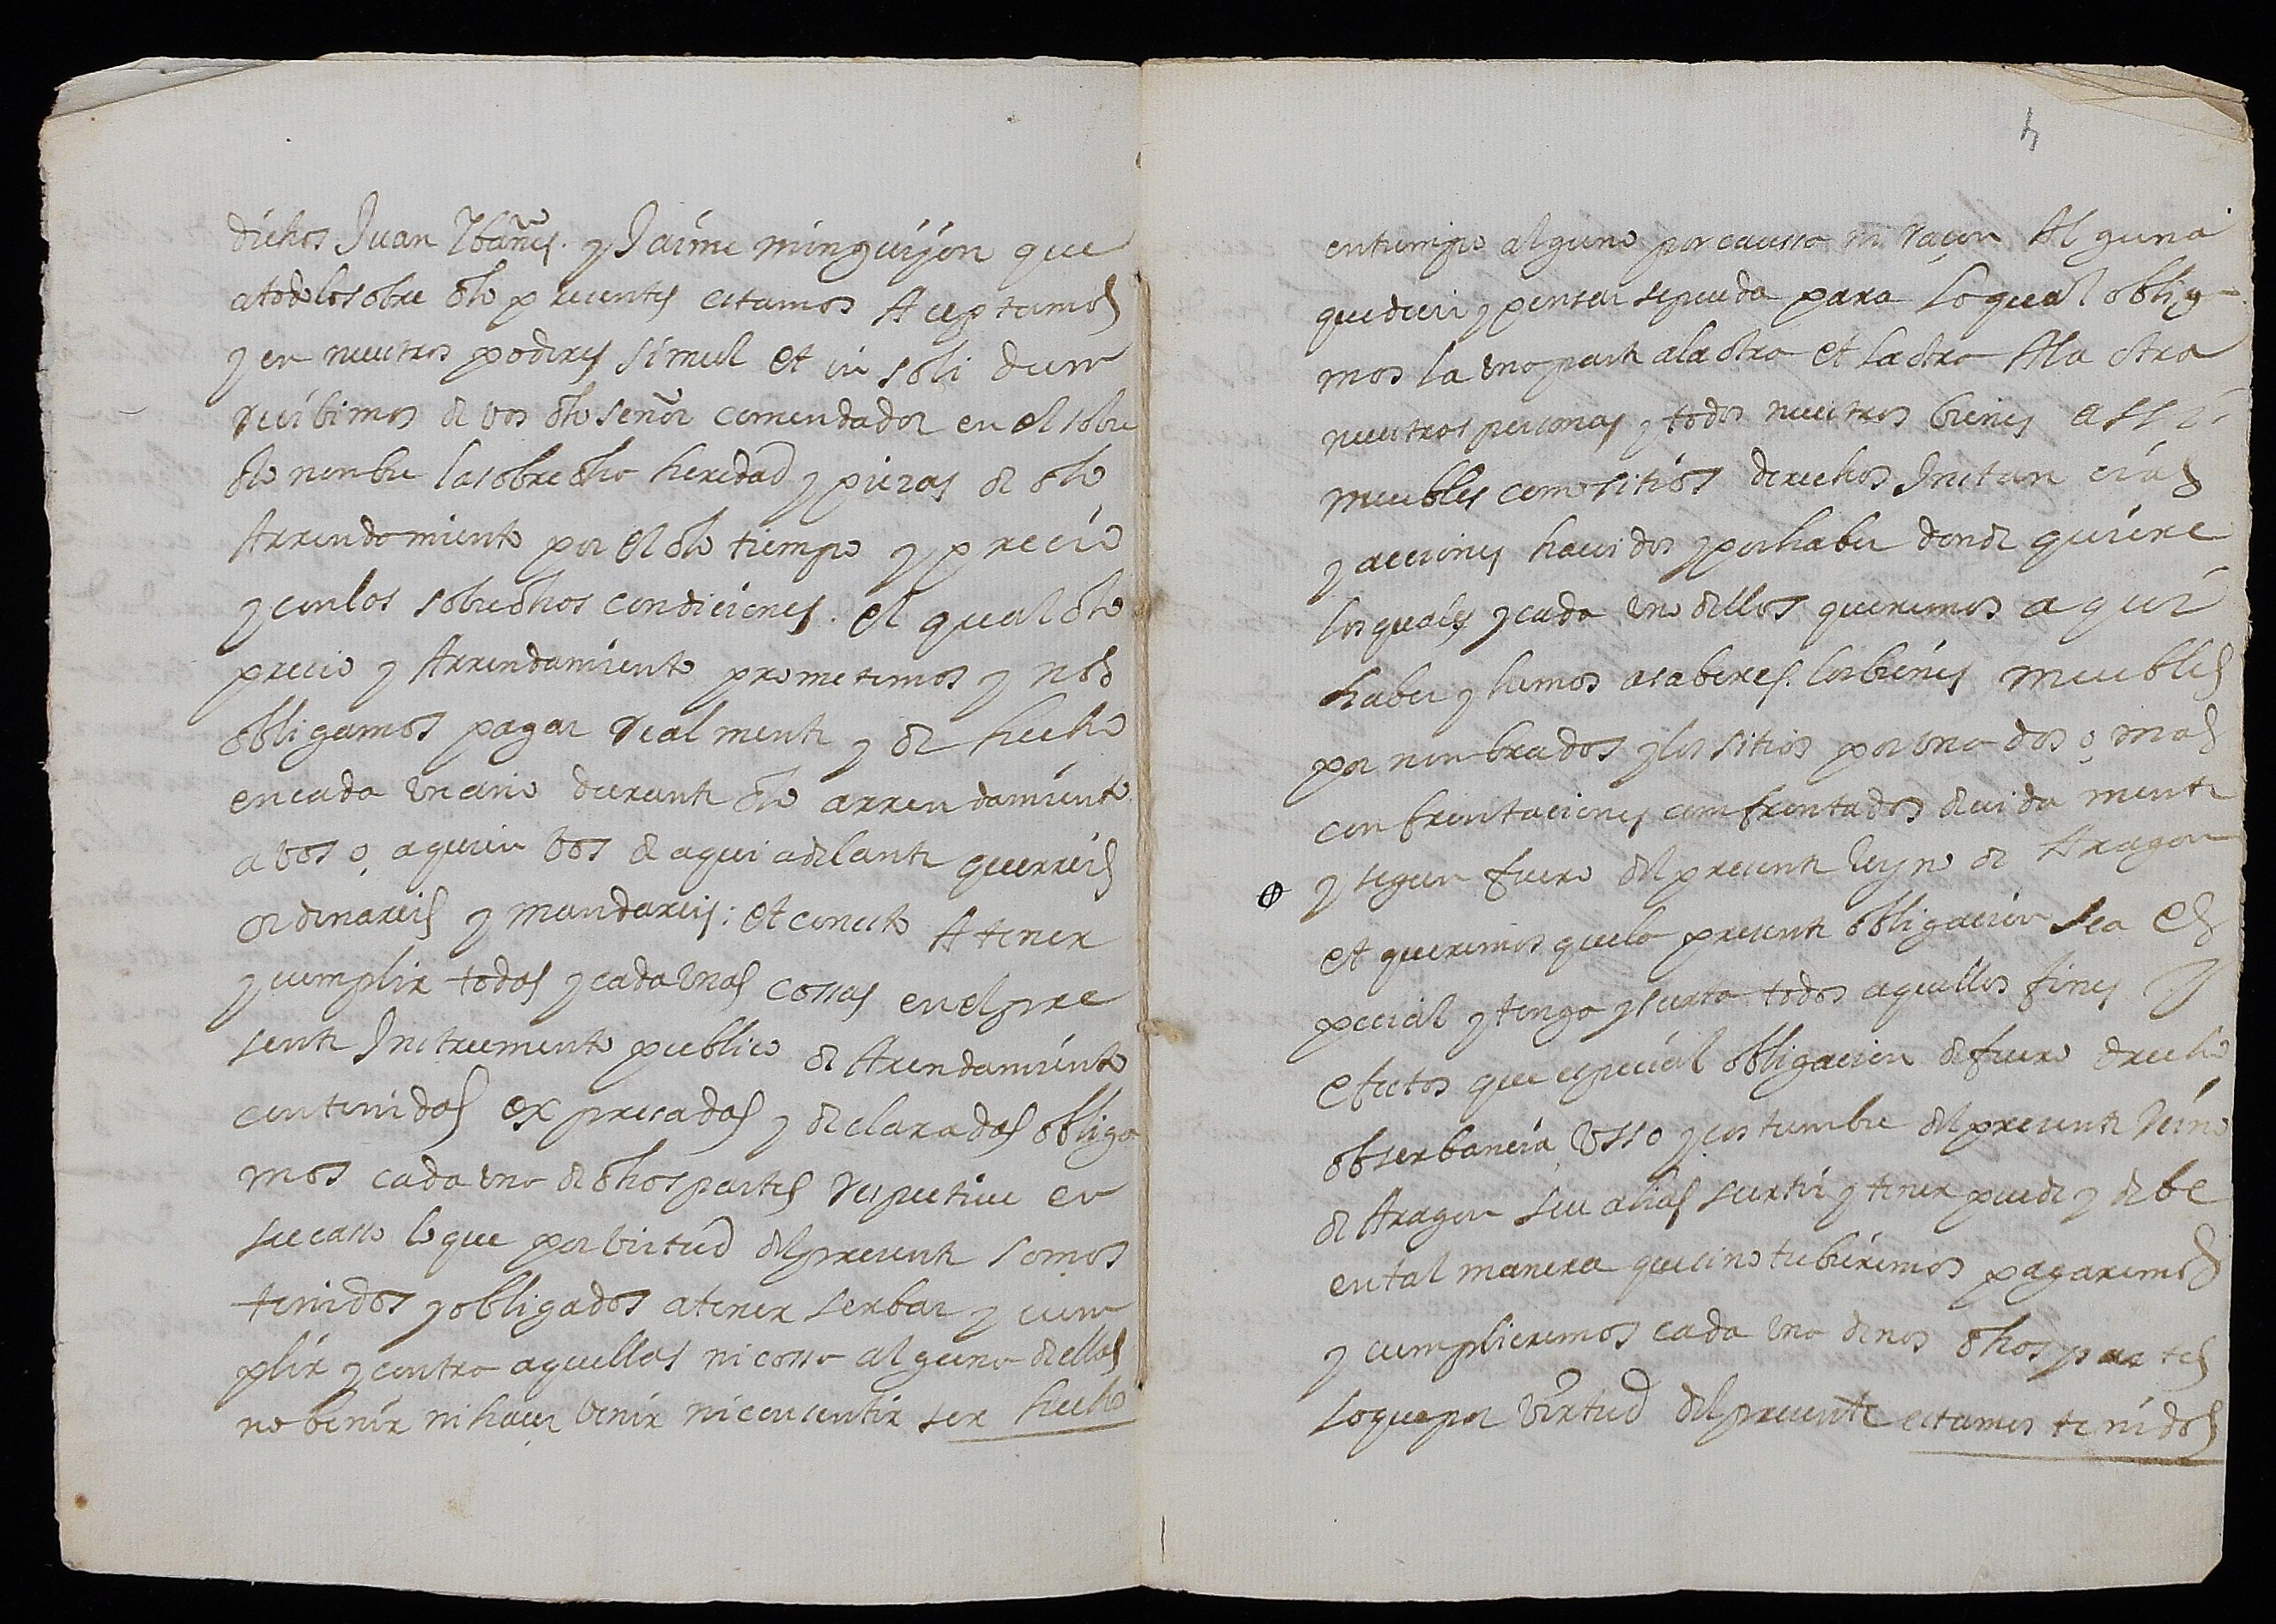 dichos Juan Ybañes. y Jaime minguijon que
atodo lo sobre dho presentes estamos Aceptamos
y en nuestros poderes simul et in soli dum
recibimos de vos dho señor comendador en el sobre
dho nombre la sobredha heredad y piezas de dho
Arrendamiento por el dho tiempo y precio
y con las sobredhas condiciones. el qual dho
precio y Arrendamiento prometemos y nos
obligamos pagar realmente y de hecho
encada un año durante dho arrendamiento
a vos o, a quien vos de aqui adelante querreis
ordenareis y mandareis: et con esto Atener
y cumplir todas y cada unas cossas enelpre
sente Instrumento publico de Arendamiento
contenidas expresadas y declaradas obliga
mos cada una de dhas partes respectiue en
su casso lo que por birtud del presente somos
tenidos y obligados atener serbar y cum
plir y contra aquellas ni cossa alguna dellas
no benir ni hacer benir ni consentir ser hecho
4
entiempo alguno por caussa ni raçon Alguna
que decir y pensar se pueda para lo qual obliga
mos la una parte ala otra et la otra Ala otra
nuestras personas y todos nuestros bienes assi
muebles como sitios derechos Instancias
y acciones hauidos y por haber donde quiere
los quales y cada uno dellos queremos aqui
haber y hamos asaber es. los bienes muebles
por nombrados y los sitios por una dos o, mas
confrontaciones comfrontados deuidamente
y segun fuero del presente Reyno de Aragon
et queremos que la presente obligacion sea es
pecial y tenga y surta todos aquellos fines y
efectos que especial obligacion de fuero drecho
obserbancia usso y costumbre del presente Reino
de Aragon seu alias surtir y tener puede y debe
ental manera que si no tubieremos pagaremos
y cumplieremos cada una de nos dhas partes
lo que por virtud del presente estamos tenidos